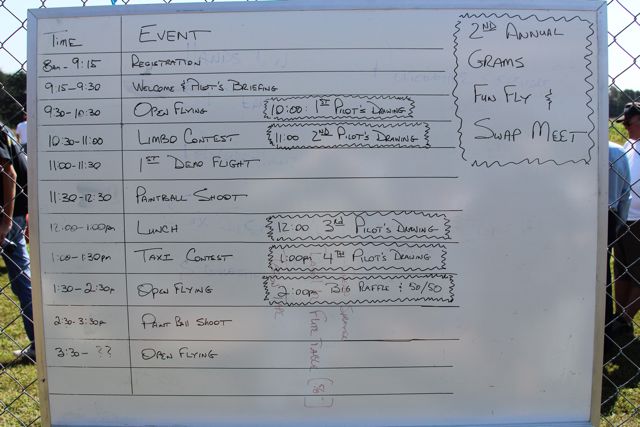 Time EVENT
8am - 9:15 REGISTRATION
9:15-9:30 WELCOME & PILOT'S BRIEFING
9:30-10:30 OPEN FLYING 10:00: 1ST PILOT'S DRAWING
10:30-11:00 LIMBO CONTEST 11:00 2ND PILOT'S DRAWING
11:00-11:30 1ST DEAD FLIGHT
11:30-12:30 PAINTBALL SHOOT
12:00-1:00pm LUNCH 12:00 3RD PILOT'S DRAWING
1:00-1:30pm TAXI CONTEST 1:00pm 4TH PILOT'S DRAWING
1:30-2:30pm OPEN FLYING 2:00pm BIG RAFFLE & 50/50
2:30-3:30p PAINT BALL SHOOT
3:30-?? OPEN FLYING
2ND ANNUAL
GRAMS
FUN FLY &
SWAP MEET